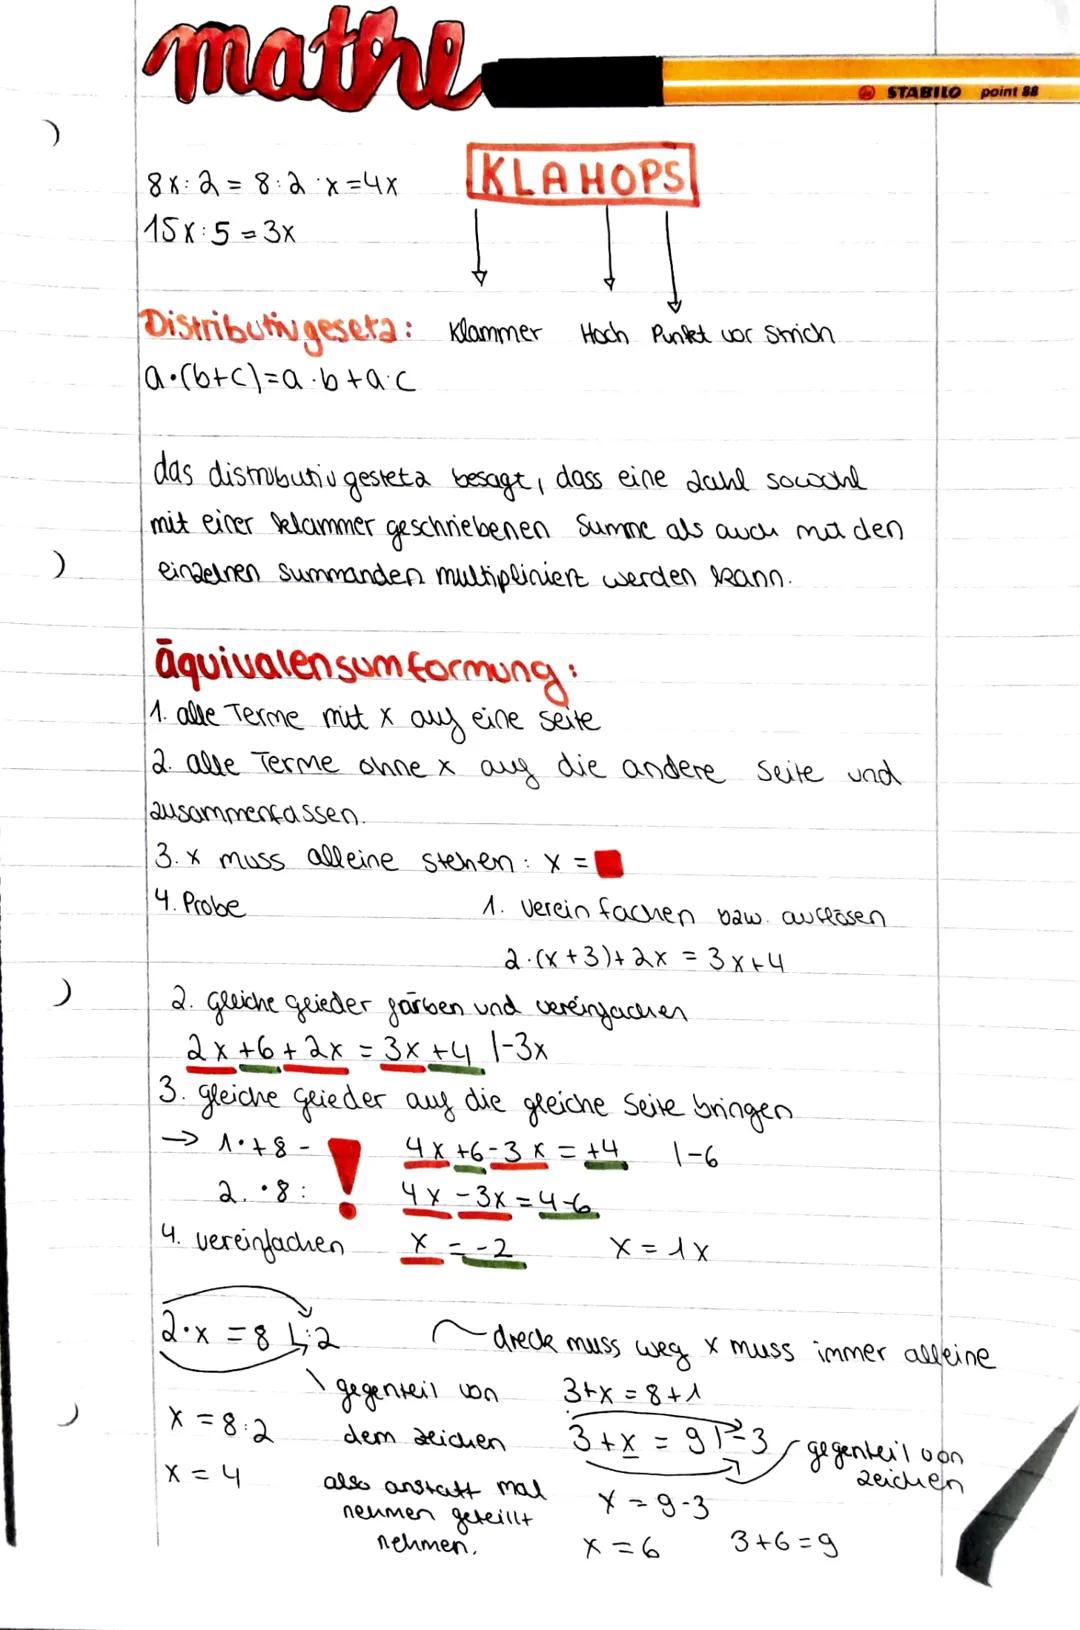 mathe
STABILO point 88
8x:2 = 8:2·x=4x
KLAHOPS
15x:5=3x
Distributivgesetz: Klammer Hoch Punkt vor Strich
a·(b+c)=a·b+a·c
das distributivgestetz besagt, dass eine zahl sowohl
mit einer klammer geschriebenen Summe als auch mit den
einzelnen summanden multipliniert werden kann.
äquivalensumformung:
1. alle Terme mit x auf eine seite
2. alle Terme ohne x auf die andere Seite und
zusammenfassen.
3. x muss alleine stehen: x =
4. Probe
1. vereinfachen bzw. auflösen
2·(x+3)+2x = 3x+4
2. gleiche glieder färben und vereinfachen
2x+6+2x = 3x+4 |-3x
3. gleiche glieder auf die gleiche Seite bringen
→ 1·+8- ! 4x+6-3x = +4 |-6
2. ·8: 4x-3x=4-6
4. vereinfachen x = -2 x = 1x
2·x = 8 |:2 dreck muss weg x muss immer alleine
gegenteil von 3+x = 8+1
x = 8:2 dem zeichen 3+x = 9 |-3 gegenteil von
zeichen
x = 4 also anstatt mal x = 9-3
nehmen geteillt
nehmen. x = 6 3+6=9